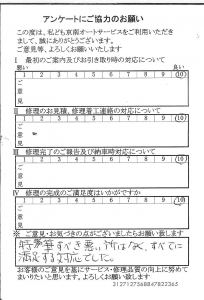 アンケートにご協力のお願い
この度は、私ども京南オートサービスをご利用いただき
まして、誠にありがとうございます。
ご意見等、よろしくお願いいたします
Ⅰ 最初のご案内及びお引き取り時の対応について
悪い 良い
1 2 3 4 5 6 7 8 9 10
ご意見
Ⅱ 修理のお見積、修理着工連絡の対応について
1 2 3 4 5 6 7 8 9 10
ご意見
Ⅲ 修理完了のご報告及び納車時対応について
1 2 3 4 5 6 7 8 9 10
ご意見
Ⅳ 修理の完成のご満足度はいかがですか
1 2 3 4 5 6 7 8 9 10
ご意見
※ ご意見・お気づきの点がございましたらお願い致します
特筆すべき悪い所はなく、すべてに
満足する対応でした。
お客様のご意見を基にサービス・修理品質の向上に努めて
まいりたいと思います。よろしくお願い致します